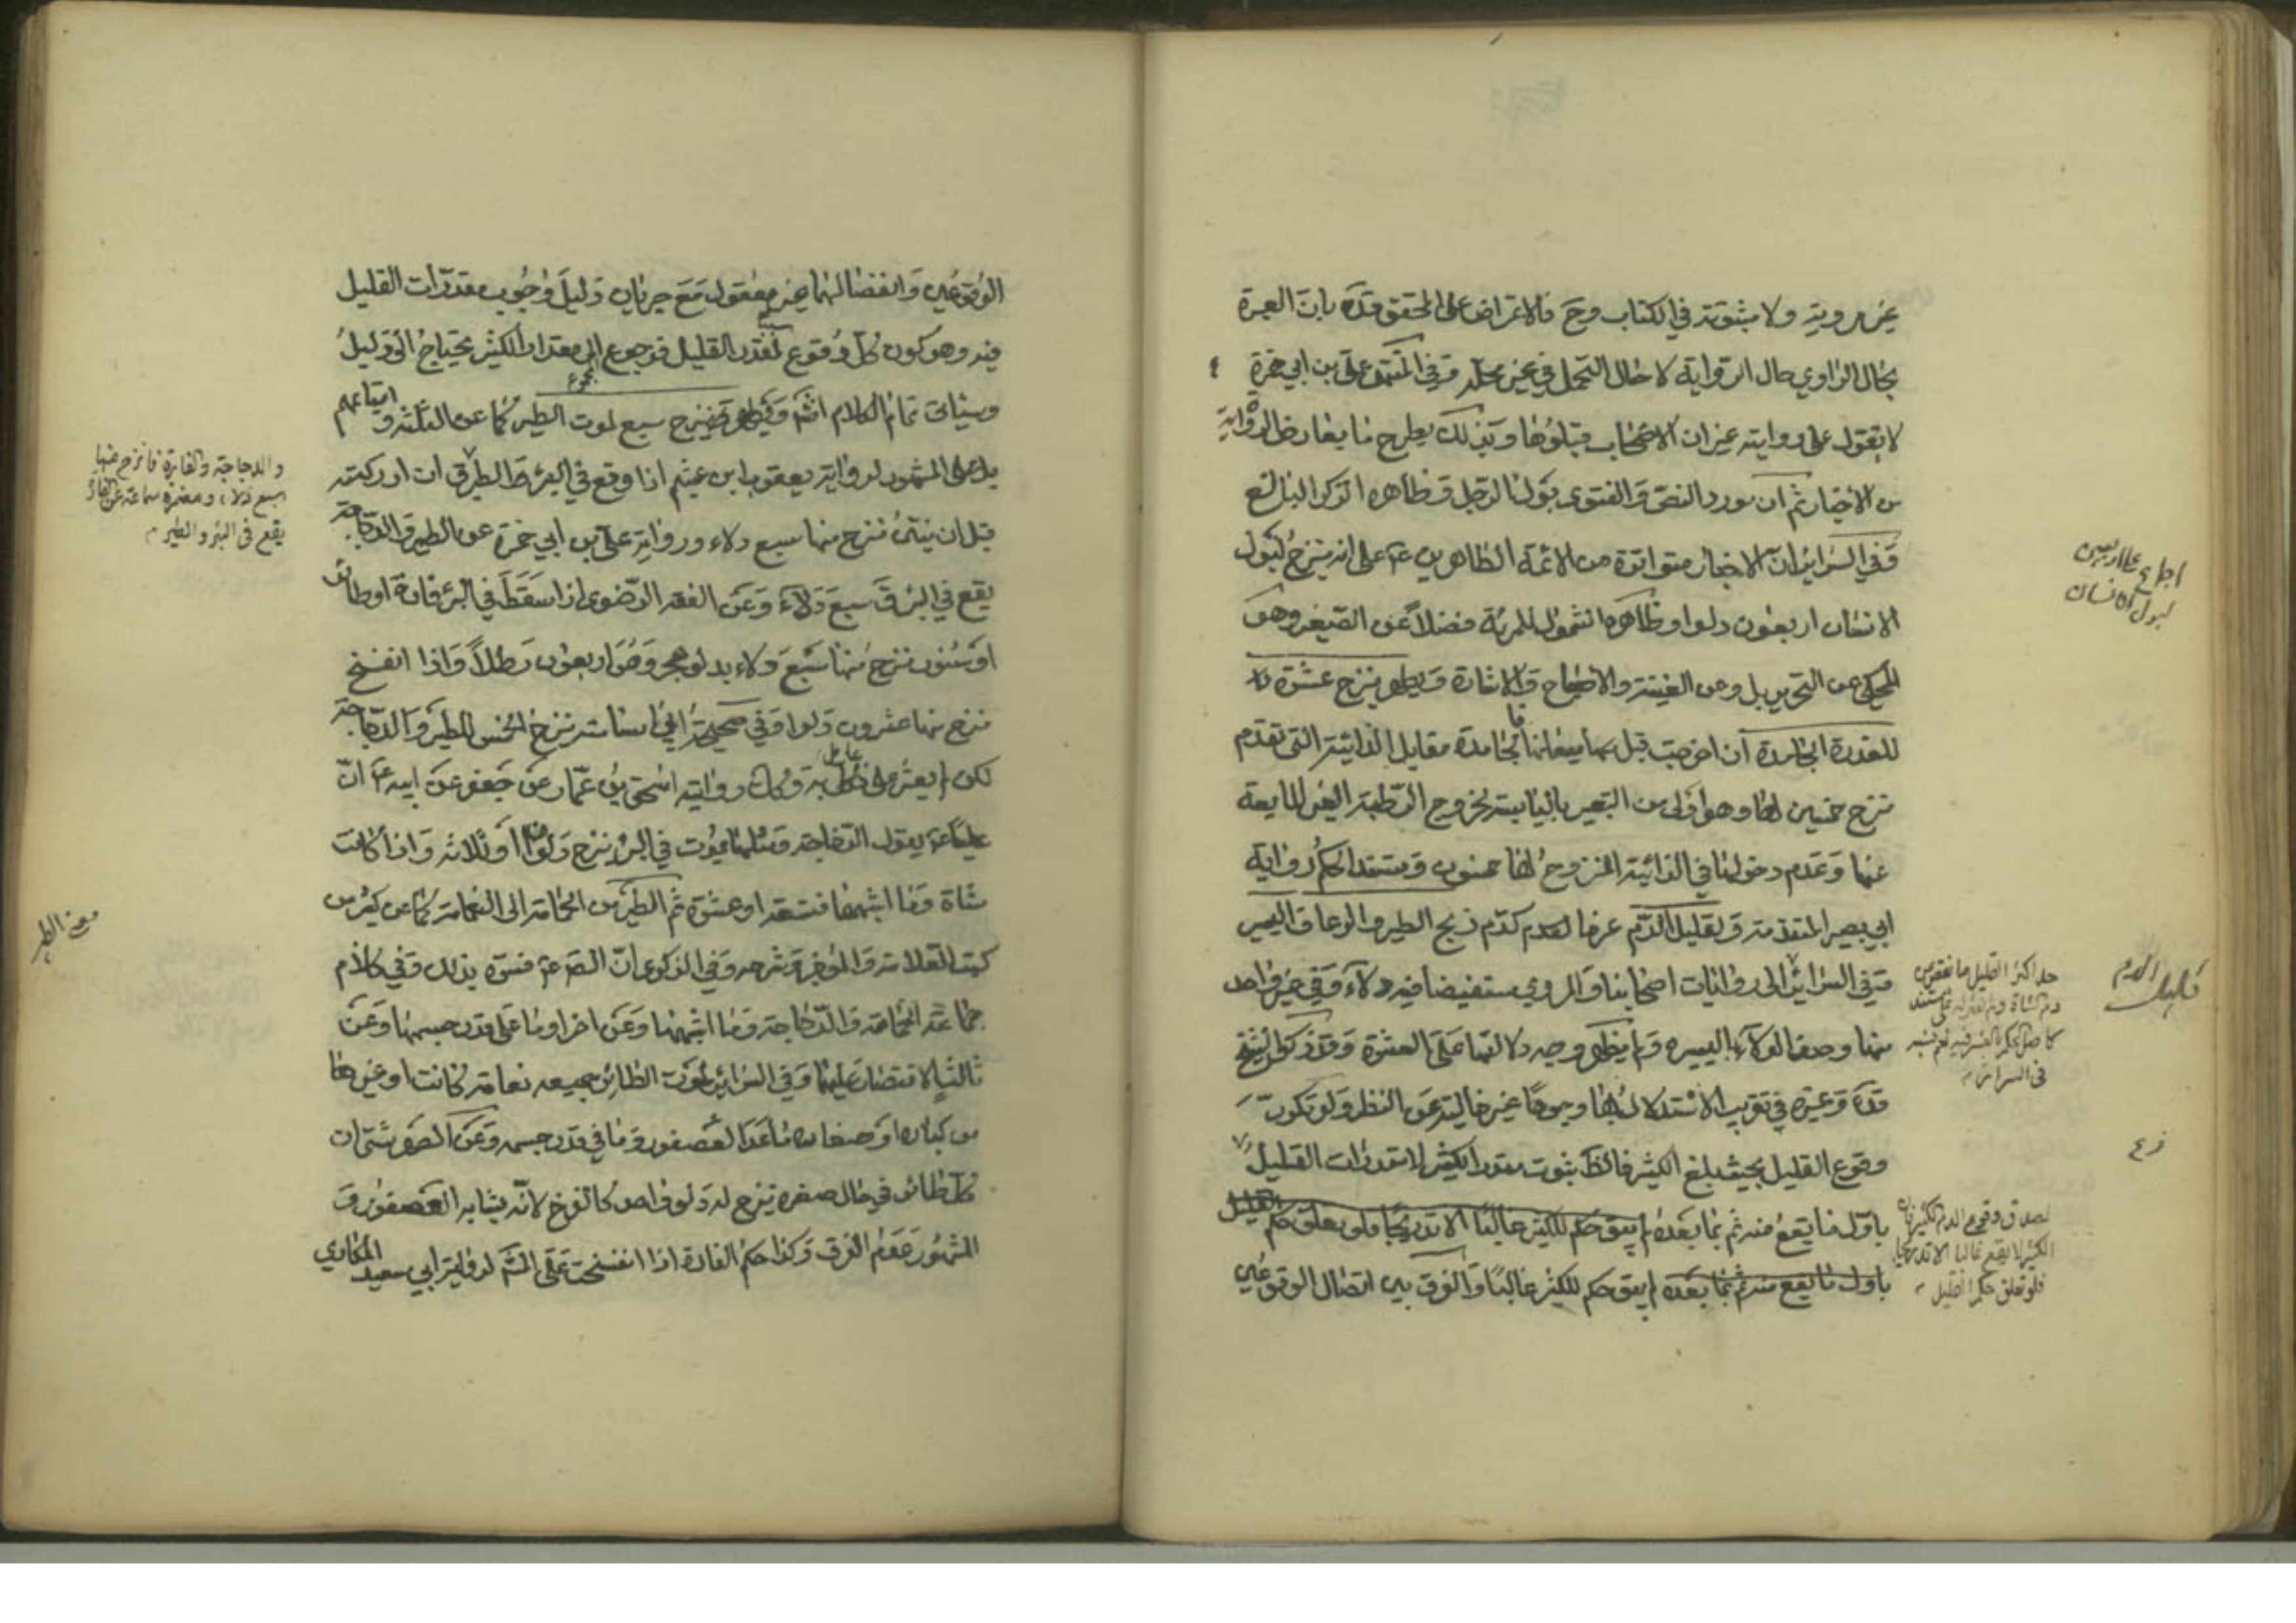 غير مروية ولا مثبوتة في الكتاب وح فالاعتراض على المحقق قده بان العبرة
بحال الراوي حال الرواية لا حال التحمل في غير محله وفي المعتبر على بن ابي حمزة
لا يعول على روايته غير ان الاصحاب قبلوها وبذلك يطرح ما يعارض الرواية
من الاخبار ثم ان مورد النص والفتوى بول الرجل وظاهره الذكر البالغ
وفي السرائر ان الاخبار متواترة من الائمة الطاهرين ع على انه ينزح لبول
الانسان اربعون دلوا وظاهره الشمول للمرئة فضلا عن الصغير وهو
المحكى عن التحرير بل وعن الغنية والاصباح والاشارة ويطهر بنزح عشرة
للعذرة الجامدة ان اخرجت قبل مامعانها الجامدة مقابل الذائبة التي تقدم
نزح خمسين لها وهو اولى من التعبير باليابسة لخروج الرطبة الغير المايعة
عنها وعدم دخولها في الذائبة المنزوح لها خمسون ومستند الحكم رواية
ابي بصير المتقدمة ولقليل الدم عرفا كدم ذبح الطير والرعاف اليسير
وفي السرائر الى روايات اصحابنا والمروي مستفيضا فيه دلاء وفي خبر واحد
منها وصف الدلاء باليسيرة ولم يظهر وجه دلالتها على العشرة وقد ذكر الشيخ
قده وغيره في تقريب الاستدلال بها وجوها غير خالية عن النظر ولو تكرر
وقوع القليل بحيث بلغ الكثير فالظ ثبوت مقدر الكثير لا مقدرات القليل
باول ما يقع منه ثم بما بعده لم يبق حكم للكثير غالبا الا تدريجا فلو تعلق حكم القليل
باول ما يقع منه ثم بما بعده لم يبق حكم للكثير غالبا والفرق بين اتصال الوقوعين
اجماع على اربعين
لبول الانسان
قليل الدم
حد اكثر القليل ما نقص من
دم الشاة
في السرائر
فرع
لصدق وقوع الدم الكثير فان
الكثير لا يقع غالبا الا تدريجا
فلو تعلق حكم القليل
الوقوعين وانفصالهما غير معقول مع جريان دليل وجوب مقدرات القليل
فيه وهو كون كل وقوع سببا لمقدر القليل فرجوع المجموع الى مقدار الكثير يحتاج الى دليل
وسياتى تمام الكلام انش ويطهر بنزح سبع لموت الطير كما عن الثلثة واتباعهم
بل على المشهور لرواية يعقوب ابن عيثم اذا وقع في البئر الطير ان ادركته
قبل ان ينتن نزح منها سبع دلاء ورواية على بن ابي حمزة عن الطير والدجاجة
يقع في البئر ق سبع دلاء وعن الفقه الرضوى اذا سقط في البئر فارة او طائر
او سنور نزح منها سبع دلاء بدلو هجر وهو اربعون رطلا واذا انفسخ
نزح منها عشرون دلوا وفي صحيحة ابي اسامة نزح الخمس للطير والدجاجة
لكن لم يعثر على عامل به وكك رواية اسحق بن عمار عن جعفر عن ابيه ع ان
عليا ع يقول الدجاجة ومثلها يموت في البئر نزح دلوان او ثلاثه واذا كانت
شاة وما اشبهها فتسعة او عشرة ثم الطير من الحمامة الى النعامة كما عن كثير من
كتب العلامة والموجز وشرحه وفي الذكرى ان الص ع فسره بذلك وفي كلام
جماعة الحمامة والدجاجة وما اشبههما وعن اخر او ما على قدر جسمها وعن
ثالث الاقتصار عليهما وفي السرائر لموت الطائر جميعه نعامة كانت او غيرها
من كباره او صغاره ما عدا العصفور وما في قدر جسمه وعن الصهرشتى ان
كل طائر في حال صغره ينزح له دلو واحد كالفرخ لانه يشابه العصفور و
المشهور عدم الفرق وكذا حكم الفارة اذا انفسخت على المش لرواية ابي سعيد المكاري
والدجاجة والفارة فانزح منها
سبع دلاء ومضمرة سماعة عن الفارة
يقع في البئر والطير
موت الطير